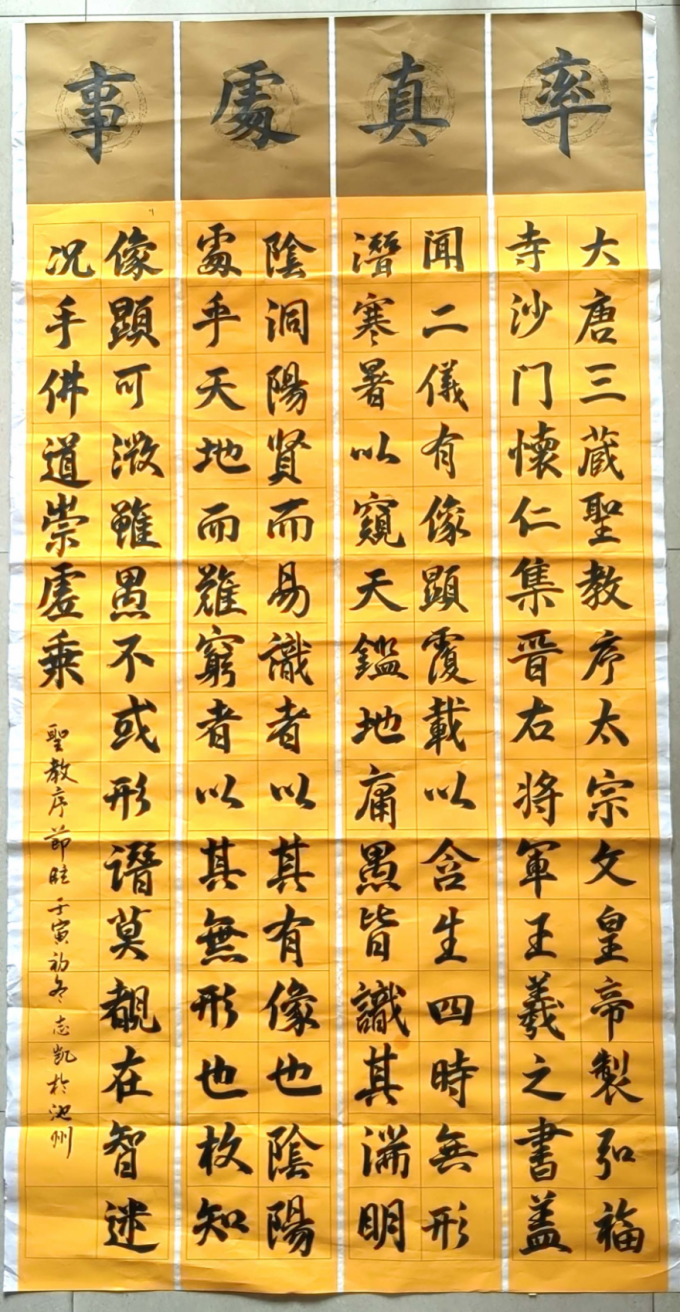 率真處事
大唐三蔵聖教序太宗文皇帝製弘福
寺沙门懷仁集晋右将軍王羲之書盖
聞二儀有像顯覆載以含生四時無形
潛寒暑以窺天鑑地庸愚皆識其湍明
陰洞陽贤而易識者以其有像也陰陽
處乎天地而難窮者以其無形也故知
像顯可徵雖愚不或形潛莫覩在智迷
况乎佛道崇虚乘
聖教序節臨壬寅初冬志凱於池州